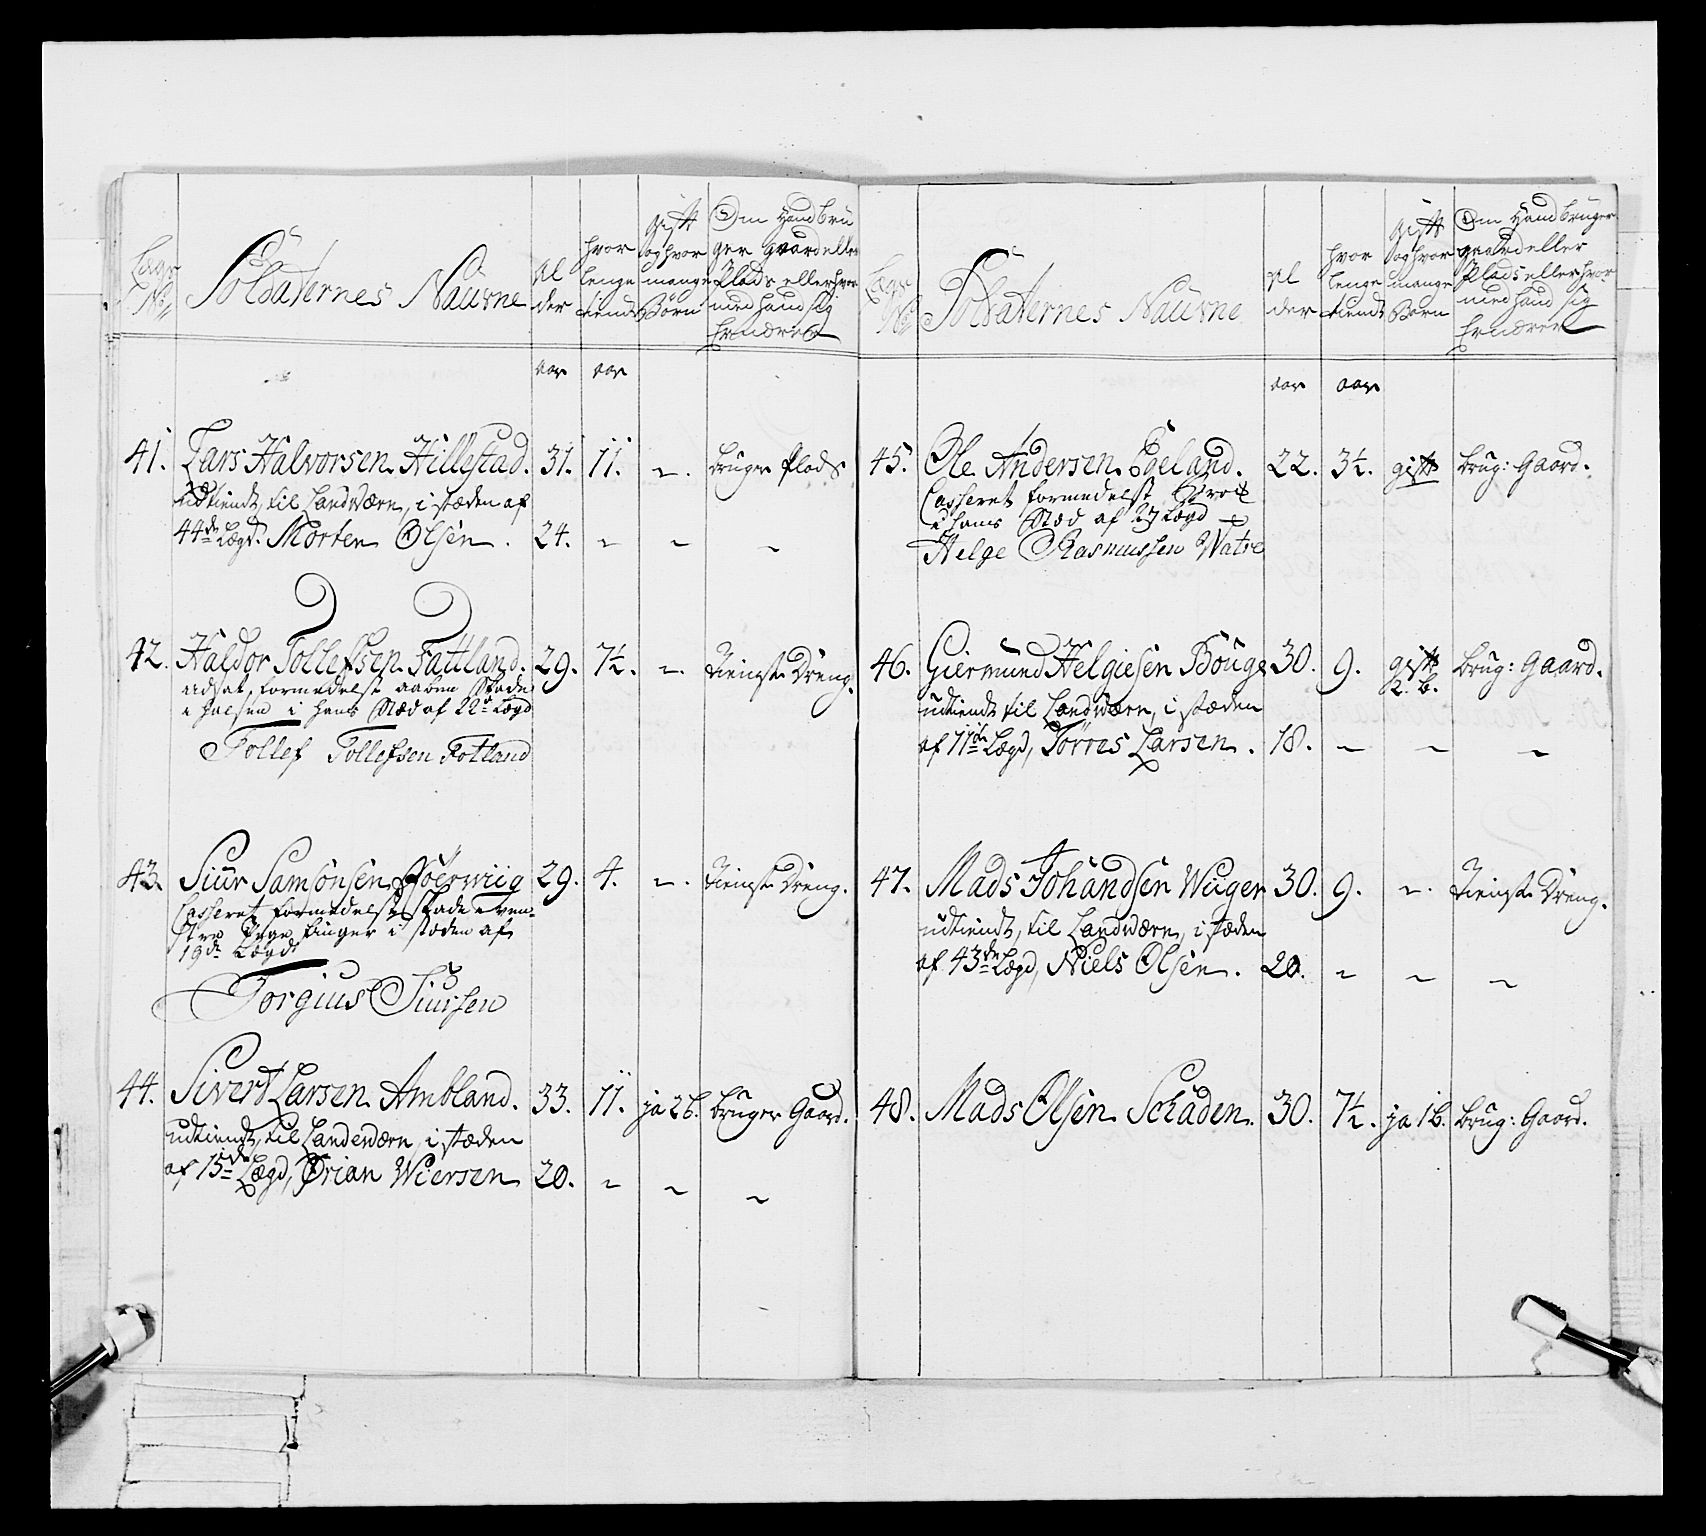 Lægs No
Soldaternes Naune
Al
der
hvor
lenge
tient
gift
og hvor
mange
Børn
Om Hand bru
ger gaard eller
Plads eller hvor
med hand sig
Ernærer
aar aar
41. Lars Halvorsen Hillestad. 31. 11. ~. bruger Plads
udtient, til Landværn, i stæden af
44de Lægd. Morten Olsen. 24. ~ ~ ~
42. Haldor Tollefsen Fattland. 29. 7½. ~. Tieniste Dreng.
udsat, formedelst aaben Skade
i halsen i hans Stæd af 22de Lægd
Tollef Tollefsen Fotland
43. Siur Samsonsen 29. 4. ~. Tieniste Dreng.
Casseret formedelst Skade i ven-
stre finger i stæden af
19de Lægd
Torgius Siursen
44. Sivert Larsen Ambland. 33. 11. ja 2 b. bruger Gaard.
udtient, til Landeværn, i stæden
af 15de Lægd, Ørian Wiersen 20. ~ ~ ~
Lægs No
Soldaternes Naune
Al
der
hvor
lenge
tient
gift
og hvor
mange
Børn
Om Hand bruger
gaard eller
Plads eller hvor
med hand sig
Ernærer
aar aar
45. Ole Andersen Egeland. 22. 3½. gift brug: Gaard.
Casseret formedelst
i hans Stæd af 27 Lægd
Helge Rasmussen Watre
46. Giermund Helgiesen Bouge 30. 9. gift
2. b. brug: Gaard.
udtient til Landværn, i stæden
af 11te Lægd, Tørres Larsen. 18. ~ ~ ~
47. Mads Johandsen Wiiger 30. 9. ~. Tieniste Dreng.
udtient, til Landværn, i stæden
af 43de Lægd, Niels Olsen. 20. ~ ~ ~
48. Mads Olsen Schaden. 30. 7½. ja 1 b. brug: Gaard.